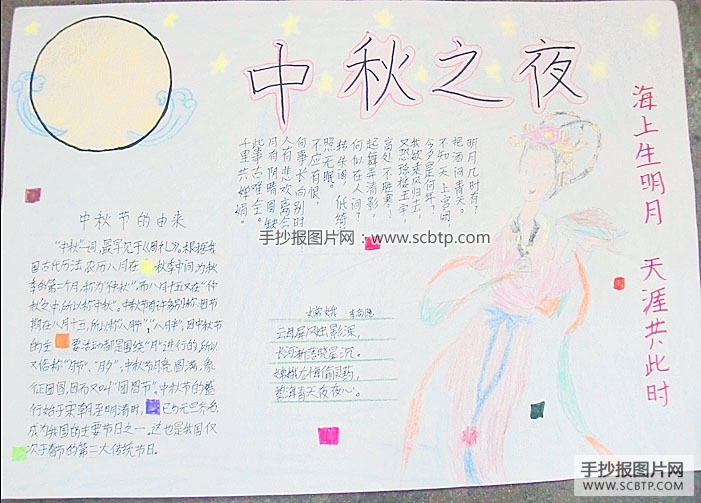 中秋之夜
海上生明月 天涯共此时
明月几时有?
把酒问青天。
不知天上宫阙,
今夕是何年?
我欲乘风归去,
又恐琼楼玉宇,
高处不胜寒!
起舞弄清影,
何似在人间?
转朱阁,低绮
照无眠。
不应有恨,
何事长向别时
人有悲欢离合
月有阴晴圆缺
此事古难全。
千里共婵娟。
手抄报图片网:www.scbtp.com
中秋节的由来
"中秋"一词,最早见于《周礼》。根据我
国古代历法,农历八月在秋季中间,为秋
季的第二个月,称为"仲秋",而八月十五又在"仲
秋"之中,所以称"中秋"。中秋节有许多别称:因节
期在八月十五,所以称"八月节","八月半",因中秋节
的主要活动都是围绕"月"进行的,所以
又俗称"月节"、"月夕",中秋节月亮圆满,象
征团圆,因而又叫"团圆节"。中秋节的盛
行始于宋朝,至明清时,已与元旦齐名
成为我国的主要节日之一。这也是我国仅
次于春节的第二大传统节日。
嫦娥 李商隐
云母屏风烛影深,
长河渐落晓星沉。
嫦娥应悔偷灵药,
碧海青天夜夜心。
手抄报图片网
WWW.SCBTP.COM